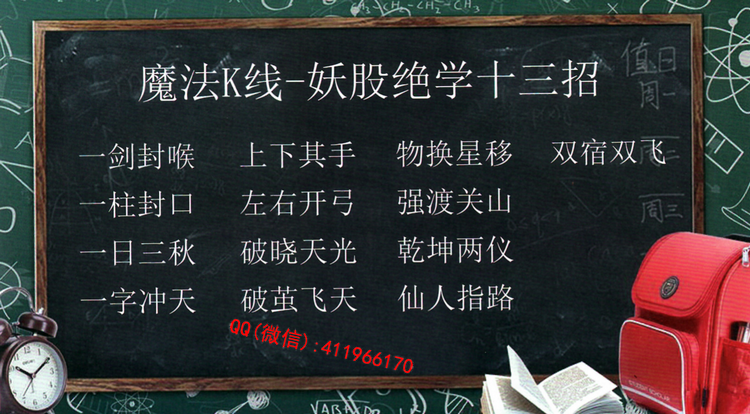 魔法K线-妖股绝学十三招
一剑封喉 上下其手 物换星移 双宿双飞
一柱封口 左右开弓 强渡关山
一日三秋 破晓天光 乾坤两仪
一字冲天 破茧飞天 仙人指路
QQ(微信):411966170
值日
周一
周二
周三